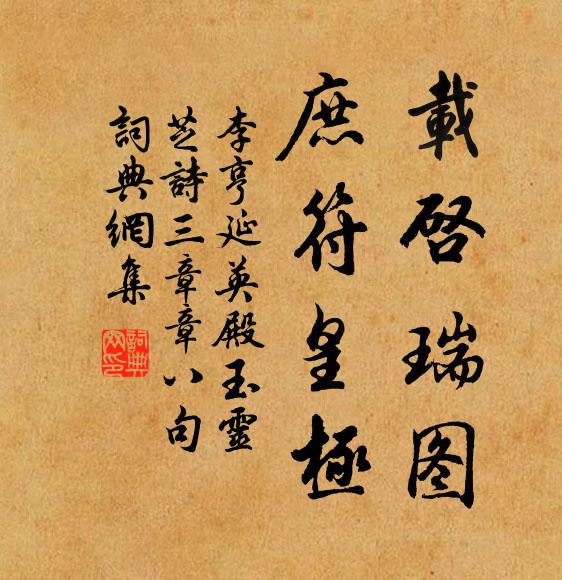 載啓瑞图
庶符皇極
李亨延英殿玉靈
芝詩三章章八句
詞典網集
詞典网印